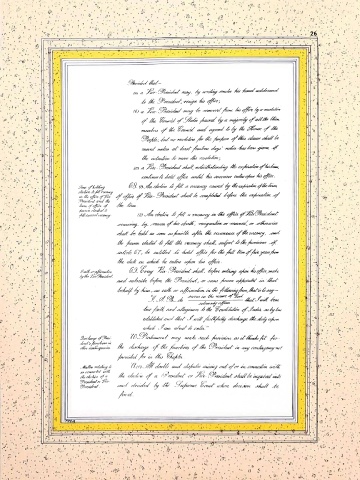 26
Provided that—
(a) a Vice-President may, by writing under his hand addressed
to the President, resign his office;
(b) a Vice-President may be removed from his office by a resolution
of the Council of States passed by a majority of all the then
members of the Council and agreed to by the House of the
People; but no resolution for the purpose of this clause shall be
moved unless at least fourteen days' notice has been given of
the intention to move the resolution;
(c) a Vice-President shall, notwithstanding the expiration of his term,
continue to hold office until his successor enters upon his office.
Time of holding
election to fill vacancy
in the office of Vice-
President and the
term of office of
person elected to
fill casual vacancy.
68. (1) An election to fill a vacancy caused by the expiration of the term
of office of Vice-President shall be completed before the expiration of
the term.
(2) An election to fill a vacancy in the office of Vice-President
occurring by reason of his death, resignation or removal, or otherwise
shall be held as soon as possible after the occurrence of the vacancy, and
the person elected to fill the vacancy shall, subject to the provisions of
article 67, be entitled to hold office for the full term of five years from
the date on which he enters upon his office.
Oath or affirmation
by the Vice-President.
69. Every Vice-President shall, before entering upon his office, make
and subscribe before the President, or some person appointed in that
behalf by him, an oath or affirmation in the following form, that is to say—
"I, A.B., do swear in the name of God that I will bear
solemnly affirm
true faith and allegiance to the Constitution of India as by law
established and that I will faithfully discharge the duty upon
which I am about to enter."
Discharge of Presi-
dent's functions in
other contingencies.
70. Parliament may make such provision as it thinks fit for
the discharge of the functions of the President in any contingency not
provided for in this Chapter.
Matters relating to
or connected with
the election of a
President or Vice-
President.
71. (1) All doubts and disputes arising out of or in connection with
the election of a President or Vice-President shall be inquired into
and decided by the Supreme Court whose decision shall be
final.